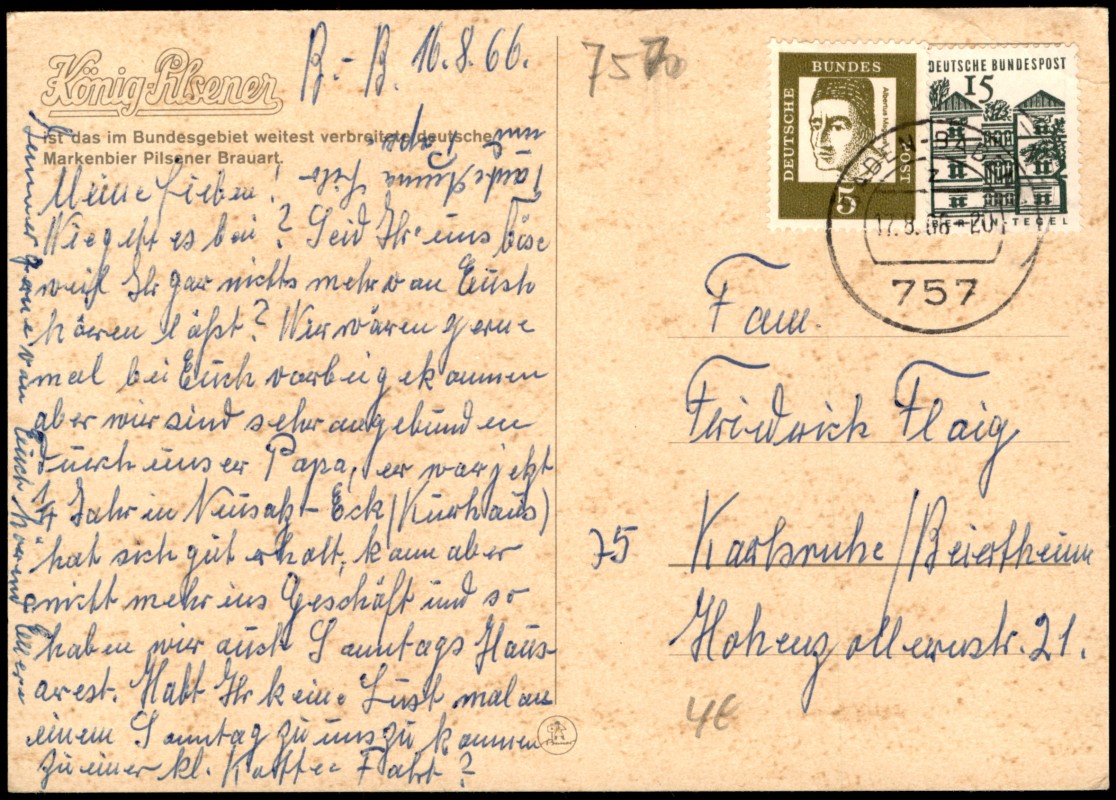 B.-B. 16.8.66.
König-Pilsener
ist das im Bundesgebiet weitest verbreitete deutsche
Markenbier Pilsener Brauart.
Meine Lieben!
Wie geht es bei? Seid Ihr uns böse
weil Ihr gar nichts mehr von Euch
hören läßt? Wir wären gerne
mal bei Euch vorbei gekommen
aber wir sind sehr angebunden
durch unser Papa, er war jetzt
1/4 Jahr in Neusatz-Eck (Kurhaus)
hat sich gut erholt, kann aber
nicht mehr ins Geschäft und so
haben wir auch Sonntags Haus-
arest. Habt Ihr keine Lust mal an
einem Sonntag zu uns zu kommen
zu einer kl. Kaffee Fahrt?
Immer gerne von Euch hörend Eure
Tante Anna
und Papa.
757
DEUTSCHE BUNDESPOST
5
Albertus Magnus
DEUTSCHE BUNDESPOST
15
BERLIN-TEGEL
BADEN-BAD
17.8.66-20
757
Fam.
Friedrich Flaig
75 Karlsruhe/Beiertheim
Hohenzollernstr. 21.
4€